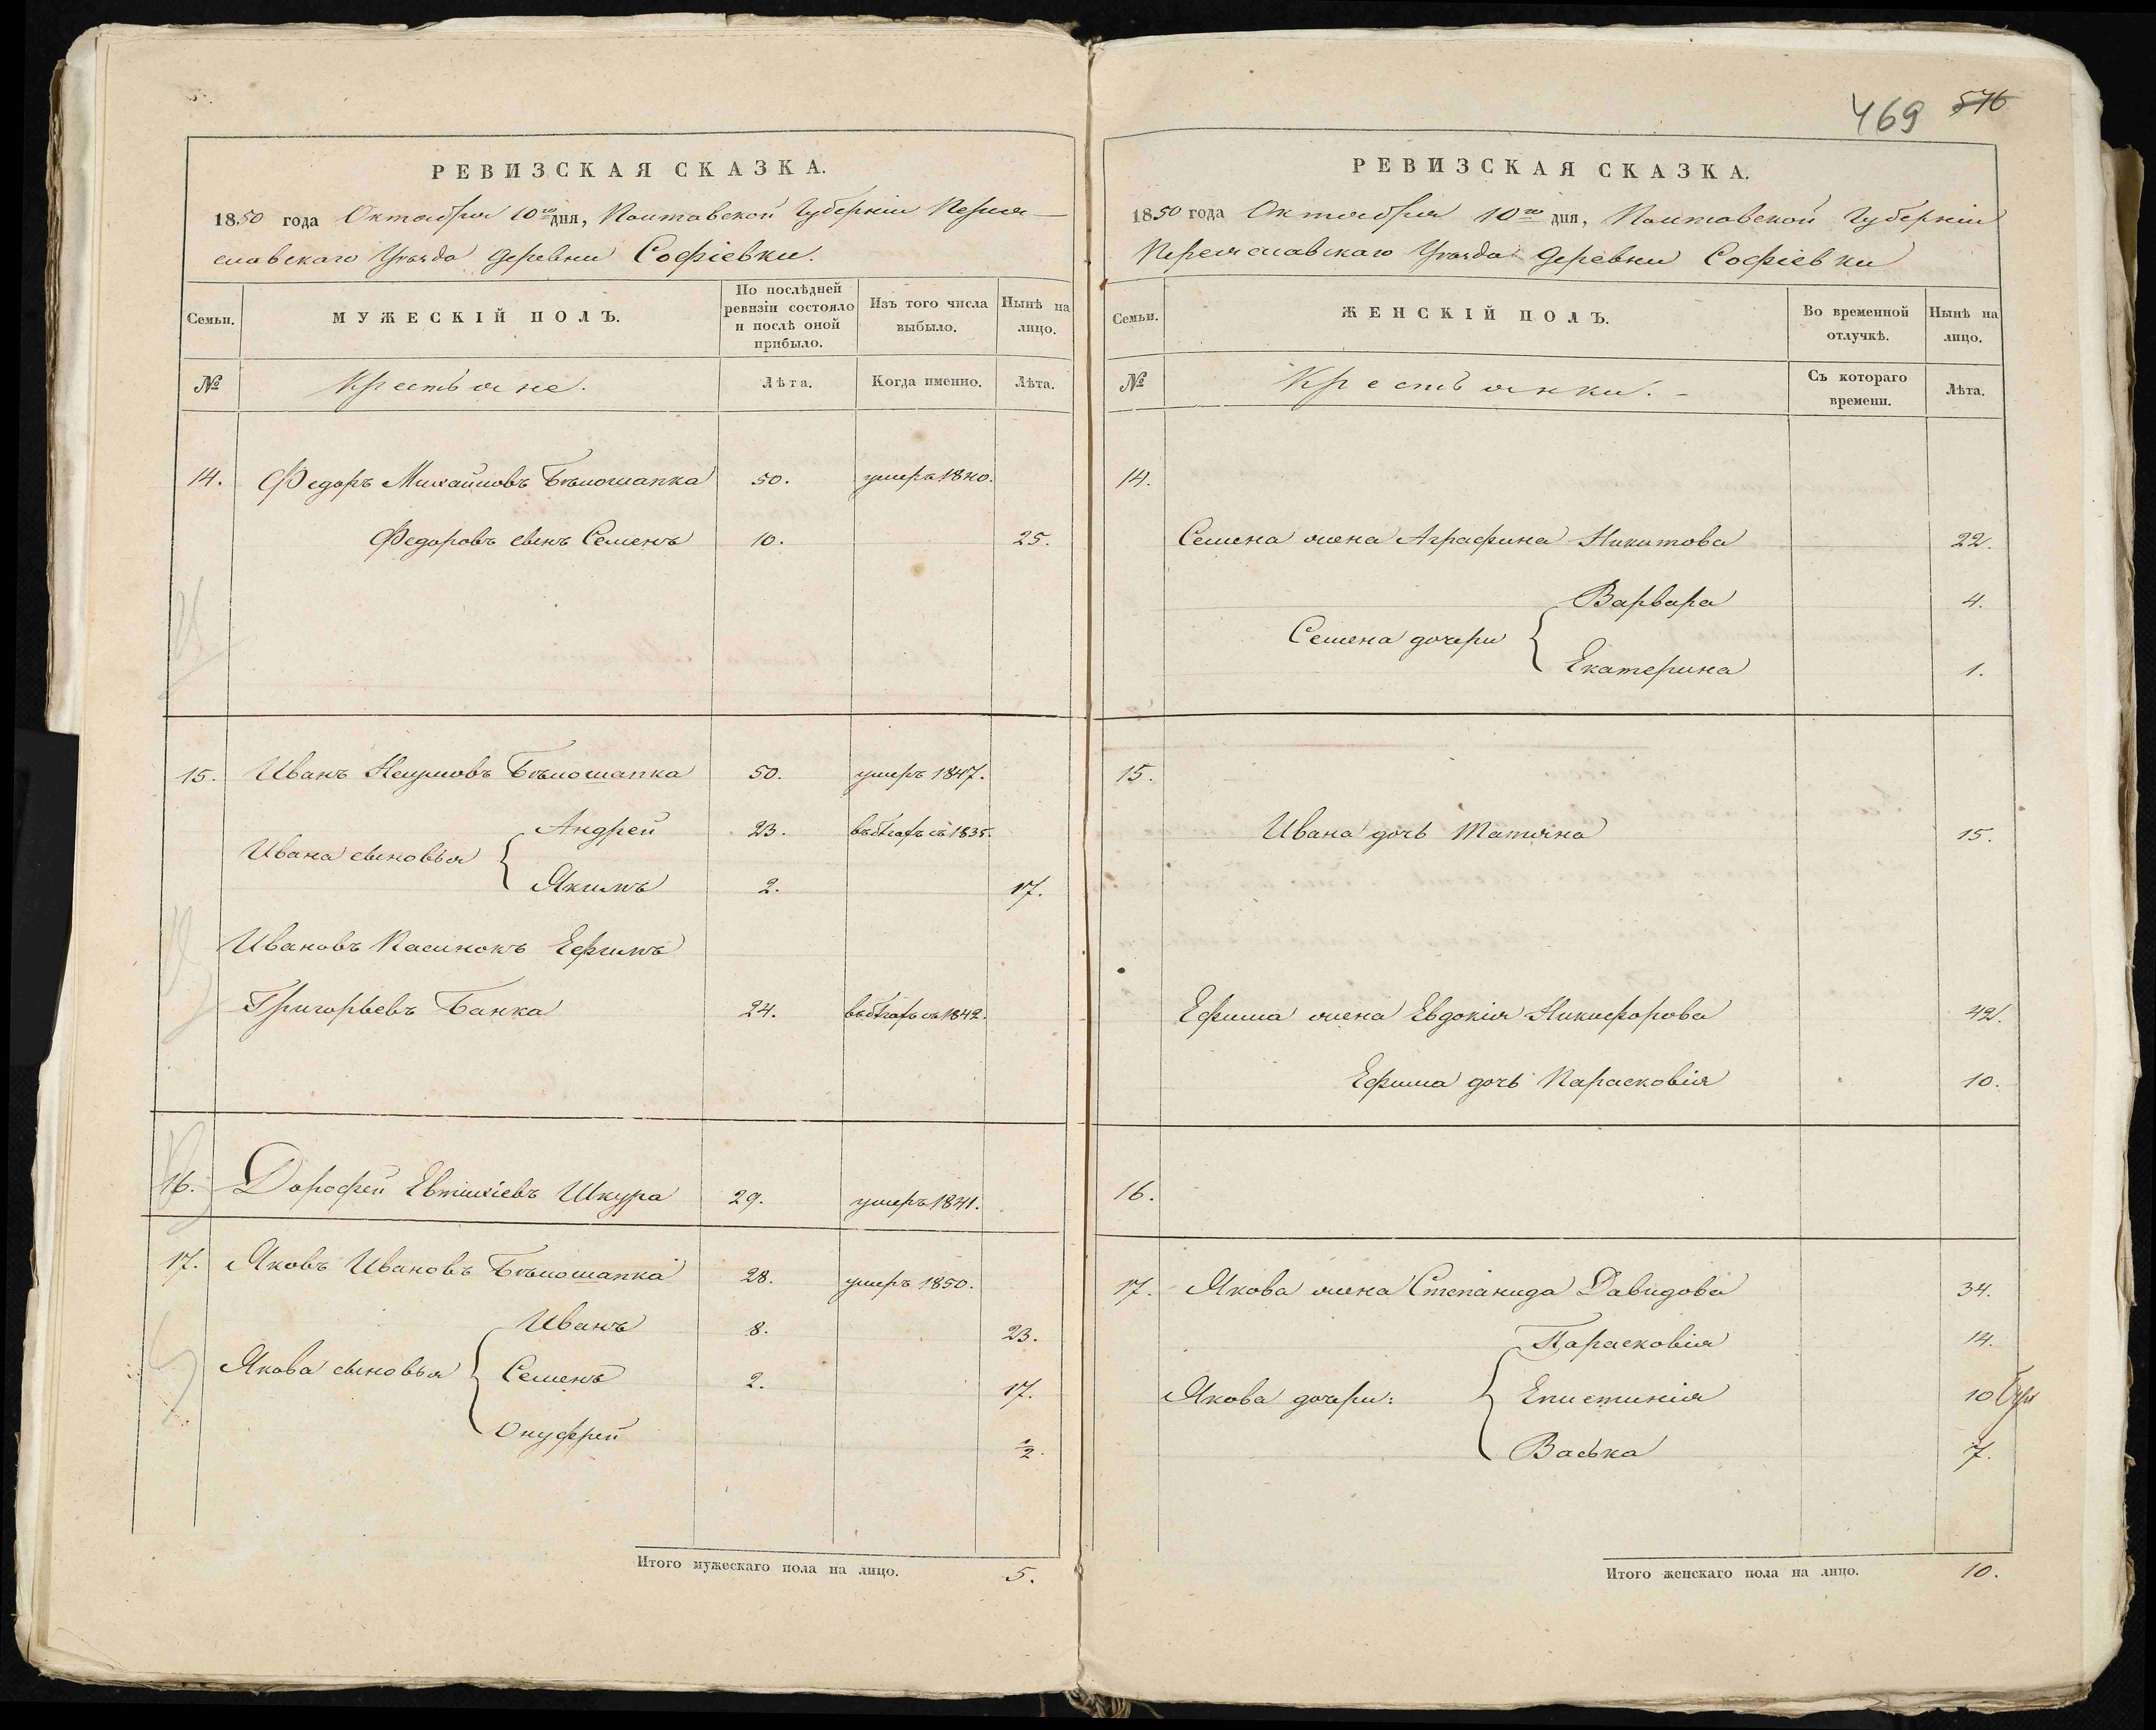 РЕВИЗСКАЯ СКАЗКА.
1850 года Октября 10го дня, Полтавской Губерніи Перея-
славскаго Уѣзда деревни Софіевки.
Семьи.
МУЖЕСКІЙ ПОЛЪ.
По послѣдней
ревизіи состояло
и послѣ оной
прибыло.
Изъ того числа
выбыло.
Нынѣ на
лицо.
№
Крестьяне.
Лѣта.
Когда именно.
Лѣта.
14. Федоръ Михайловъ Бѣлошапка 50. умеръ 1840.
Федоровъ сынъ Семенъ 10. 25.
15. Иванъ Наумовъ Бѣлошапка 50. умеръ 1847.
Андрей 23. въ бѣгахъ съ 1835.
Ивана сыновья
Якимъ 2. 17.
Ивановъ Пасынокъ Ефимъ
Григорьевъ Банка 24. въ бѣгахъ съ 1842.
16. Дорофей Евтихіевъ Шкура 29. умеръ 1841.
17. Яковъ Ивановъ Бѣлошапка 28. умеръ 1850.
Иванъ 8. 23.
Якова сыновья
Семенъ 2. 17.
Онуфрей ½.
Итого мужескаго пола на лицо. 5.
469 576
РЕВИЗСКАЯ СКАЗКА.
1850 года Октября 10го дня, Полтавской Губерніи
Переяславскаго Уѣзда деревни Софіевки
Семьи.
ЖЕНСКІЙ ПОЛЪ.
Во временной
отлучкѣ.
Нынѣ на
лицо.
№
Крестьянки.
Съ котораго
времени.
Лѣта.
14.
Семена жена Аграфина Никитова 22.
Варвара 4.
Семена дочери
Екатерина 1.
15.
Ивана дочь Татяна 15.
Ефима жена Евдокія Никифорова 42.
Ефима дочь Парасковія 10.
16.
17. Якова жена Степанида Давидова 34.
Парасковія 14.
Якова дочери: Епистинія 10
Васька 7.
Итого женскаго пола на лицо. 10.